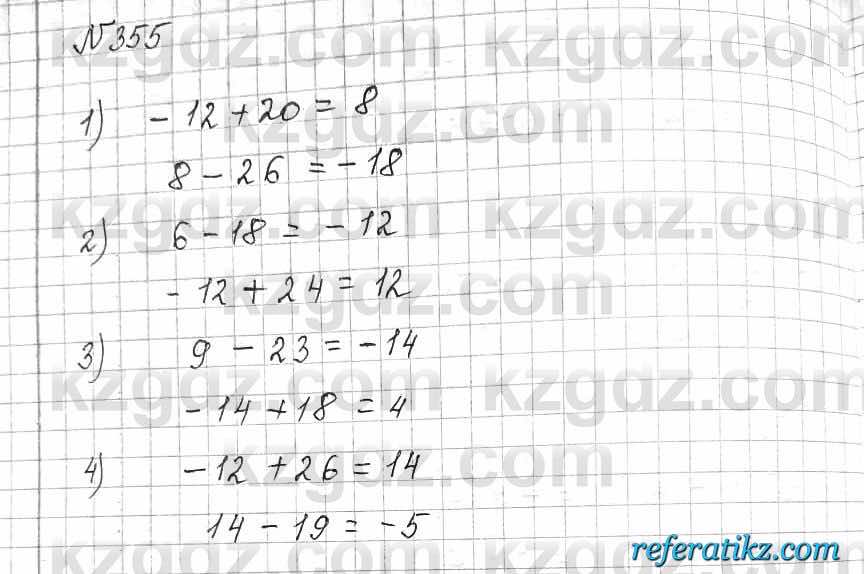 №355
1) - 12 + 20 = 8
8 - 26 = - 18
2) 6 - 18 = - 12
- 12 + 24 = 12
3) 9 - 23 = - 14
- 14 + 18 = 4
4) - 12 + 26 = 14
14 - 19 = - 5
kzgdz.com kzgdz.com
kzgdz.com
kzgdz.com kzgdz.com
kzgdz.com
kzgdz.com kzgdz.com
kzgdz.com
kzgdz.com
referatikz.com